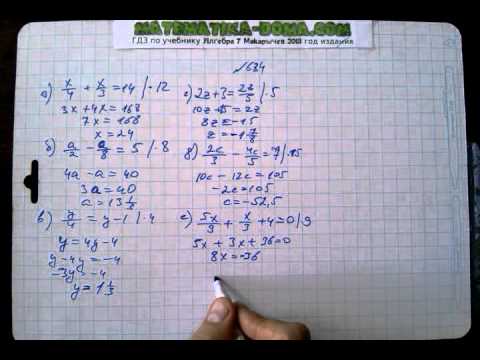 MATEMATIKA-DOMA.COM
ГДЗ по учебнику Алгебра 7 Макарычев 2013 год издания
№634
а) x/4 + x/3 = 14 | · 12
3x + 4x = 168
7x = 168
x = 24
б) a/2 - a/8 = 5 | · 8
4a - a = 40
3a = 40
a = 13 1/3
в) y/4 = y - 1 | · 4
y = 4y - 4
y - 4y = -4
-3y = -4
y = 1 1/3
г) 2z + 3 = 2z/5 | · 5
10z + 15 = 2z
8z = -15
z = -1 7/8
д) 2c/3 - 4c/5 = 7 | · 15
10c - 12c = 105
-2c = 105
c = -52,5
е) 5x/9 + x/3 + 4 = 0 | · 9
5x + 3x + 36 = 0
8x = -36